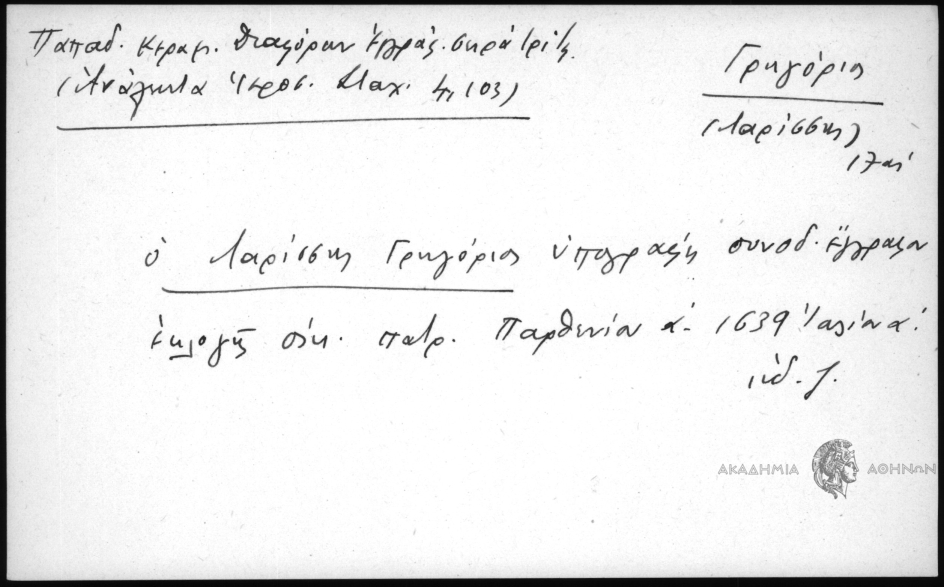 Παπαδ. Κεραμ. Διαφόρων ἐγγράφ. σειρὰ τρίτη
(Ἀνάλεκτα Ἱεροσ. Σταχ. 4, 103)
Γρηγόριος
(Λαρίσσης)
17 αἰ
ὁ Λαρίσσης Γρηγόριος ὑπογράφει συνοδ. ἔγγραφον
ἐκλογῆς οἰκ. πατρ. Παρθενίου α΄. 1639 Ἰουλίου α΄.
ἰνδ. ζ.
ΑΚΑΔΗΜΙΑ ΑΘΗΝΩΝ